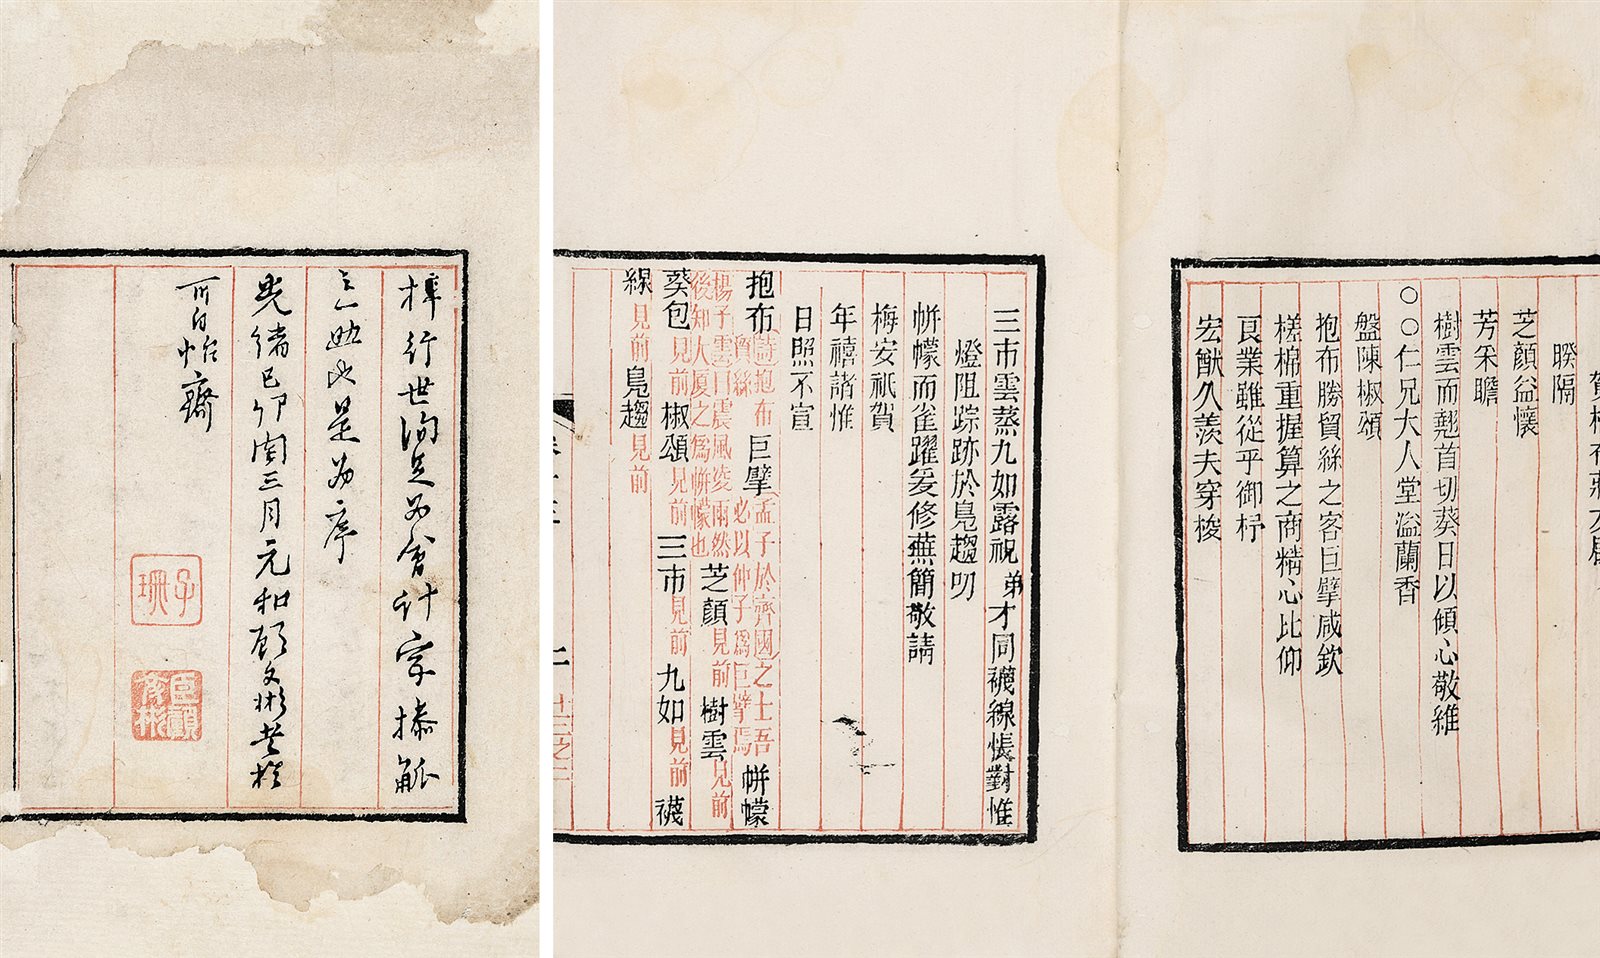 梓行世詢足為會計家操觚
之一助此是為序
光緒己卯閏三月元和顧文彬書於
可自怡齋
子珊
臣顧文彬
睽隔
芝顏益懷
芳采瞻
樹雲而翹首切葵日以傾心敬維
○○仁兄大人堂溢蘭香
盤陳椒頌
抱布勝貿絲之客巨擘咸欽
槎棉重握算之商精心比仰
良業雖從乎御杼
宏猷久羨夫穿梭
三市雲蒸九如露祝弟才同襪線悵對惟
燈阻踪跡於鳧趨叨
帡幪而雀躍爰修蕪簡敬請
梅安祇賀
年禧諸惟
日照不宣
抱布詩抱布貿絲巨擘孟子於齊國之士吾必以仲子爲巨擘焉帡幪
揚子雲曰震風凌雨然後知大厦之爲帡幪也芝顏見前樹雲見前
葵包見前椒頌見前三市見前九如見前襪
線見前鳧趨見前